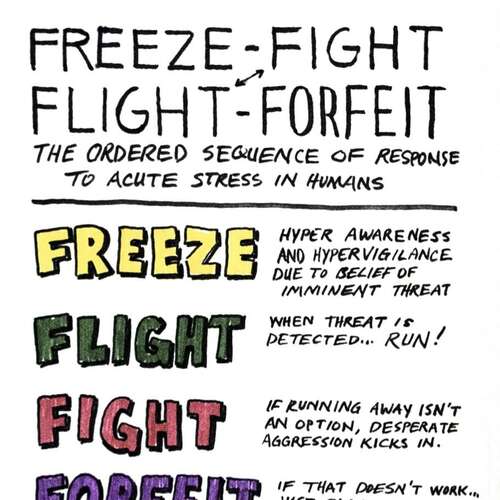 FREEZE-FIGHT
FLIGHT-FORFEIT
THE ORDERED SEQUENCE OF RESPONSE
TO ACUTE STRESS IN HUMANS
FREEZE
HYPER AWARENESS
AND HYPERVIGILANCE
DUE TO BELIEF OF
IMMINENT THREAT
FLIGHT
WHEN THREAT IS
DETECTED... RUN!
FIGHT
IF RUNNING AWAY ISN'T
AN OPTION, DESPERATE
AGGRESSION KICKS IN.
FORFEIT
IF THAT DOESN'T WORK...